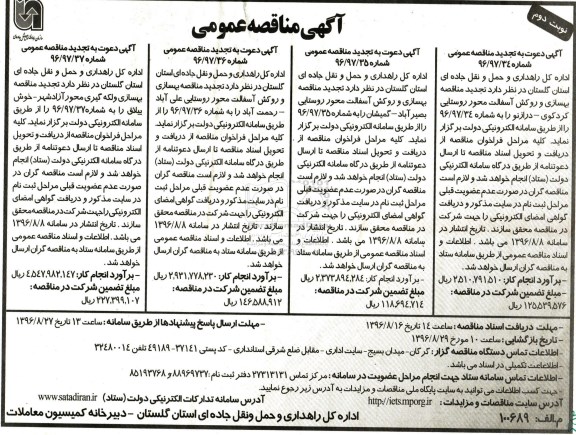 آگهی مناقصه عمومی
نوبت دوم
آگهی دعوت به تجدید مناقصه عمومی
شماره ۹۶/۹۷/۳۴
اداره کل راهداری و حمل و نقل جاده ای
استان گلستان در نظر دارد تجدید مناقصه
بهسازی و روکش آسفالت محور روستایی
کردکوی – درازنو را به شماره ۹۶/۹۷/۳۴
را از طریق سامانه الکترونیکی دولت برگزار
نماید. کلیه مراحل فراخوان مناقصه از
دریافت و تحویل اسناد مناقصه تا ارسال
دعوتنامه از طریق درگاه سامانه الکترونیکی
دولت (ستاد) انجام خواهد شد و لازم است
مناقصه گران در صورت عدم عضویت قبلی
مراحل ثبت نام در سایت مذکور و دریافت
گواهی امضای الکترونیکی را جهت شرکت
در مناقصه محقق سازند. تاریخ انتشار در
سامانه ۱۳۹۶/۸/۸ می باشد. اطلاعات و
اسناد مناقصه عمومی از طریق سامانه ستاد
به مناقصه گران ارسال خواهد شد.
- برآورد انجام کار: ۲.۵۱۰.۷۹۱.۵۱۰ ریال
مبلغ تضمین شرکت در مناقصه:
۱۲۵.۵۳۹.۵۷۶ ریال
آگهی دعوت به تجدید مناقصه عمومی
شماره ۹۶/۹۷/۳۵
اداره کل راهداری و حمل و نقل جاده ای
استان گلستان در نظر دارد تجدید مناقصه
بهسازی و روکش آسفالت محور روستایی
بصیرآباد – گمیشان را به شماره ۹۶/۹۷/۳۵
را از طریق سامانه الکترونیکی دولت برگزار
نماید. کلیه مراحل فراخوان مناقصه از
دریافت و تحویل اسناد مناقصه تا ارسال
دعوتنامه از طریق درگاه سامانه الکترونیکی
دولت (ستاد) انجام خواهد شد و لازم است
مناقصه گران در صورت عدم عضویت قبلی
مراحل ثبت نام در سایت مذکور و دریافت
گواهی امضای الکترونیکی را جهت شرکت
در مناقصه محقق سازند. تاریخ انتشار در
سامانه ۱۳۹۶/۸/۸ می باشد. اطلاعات و
اسناد مناقصه عمومی از طریق سامانه ستاد
به مناقصه گران ارسال خواهد شد.
- برآورد انجام کار: ۲.۳۷۳.۸۹۴.۲۸۴ ریال
مبلغ تضمین شرکت در مناقصه:
۱۱۸.۶۹۴.۷۱۴ ریال
آگهی دعوت به تجدید مناقصه عمومی
شماره ۹۶/۹۷/۳۶
اداره کل راهداری و حمل و نقل جاده ای استان
گلستان در نظر دارد تجدید مناقصه بهسازی
و روکش آسفالت محور روستایی علی آباد
– رحمت آباد را به شماره ۹۶/۹۷/۳۶ را از
طریق سامانه الکترونیکی دولت برگزار نماید.
کلیه مراحل فراخوان مناقصه از دریافت و
تحویل اسناد مناقصه تا ارسال دعوتنامه از
طریق درگاه سامانه الکترونیکی دولت (ستاد)
انجام خواهد شد و لازم است مناقصه گران
در صورت عدم عضویت قبلی مراحل ثبت
نام در سایت مذکور و دریافت گواهی امضای
الکترونیکی را جهت شرکت در مناقصه محقق
سازند. تاریخ انتشار در سامانه ۱۳۹۶/۸/۸
می باشد. اطلاعات و اسناد مناقصه عمومی
از طریق سامانه ستاد به مناقصه گران ارسال
خواهد شد.
- برآورد انجام کار: ۲.۹۳۱.۷۷۸.۲۳۰ ریال
مبلغ تضمین شرکت در مناقصه:
۱۴۶.۵۸۸.۹۱۲ ریال
آگهی دعوت به تجدید مناقصه عمومی
شماره ۹۶/۹۷/۳۷
اداره کل راهداری و حمل و نقل جاده ای
استان گلستان در نظر دارد تجدید مناقصه
بهسازی ولکه گیری محور آزادشهر- خوش
ییلاق را به شماره ۹۶/۹۷/۳۷ را از طریق
سامانه الکترونیکی دولت برگزار نماید. کلیه
مراحل فراخوان مناقصه از دریافت و تحویل
اسناد مناقصه تا ارسال دعوتنامه از طریق
درگاه سامانه الکترونیکی دولت (ستاد) انجام
خواهد شد و لازم است مناقصه گران در
صورت عدم عضویت قبلی مراحل ثبت نام
در سایت مذکور و دریافت گواهی امضای
الکترونیکی را جهت شرکت در مناقصه محقق
سازند. تاریخ انتشار در سامانه ۱۳۹۶/۸/۸
می باشد. اطلاعات و اسناد مناقصه عمومی
از طریق سامانه ستاد به مناقصه گران ارسال
خواهد شد.
- برآورد انجام کار: ۴.۵۴۷.۹۸۲.۱۴۷ ریال
مبلغ تضمین شرکت در مناقصه:
۲۲۷.۳۹۹.۱۰۷ ریال
-مهلت دریافت اسناد مناقصه: ساعت ۱۴ تاریخ ۱۳۹۶/۸/۱۶ -مهلت ارسال پاسخ پیشنهادها از طریق سامانه: ساعت ۱۳ تاریخ ۱۳۹۶/۸/۲۷
-تاریخ بازگشایی: ساعت ۱۰ مورخ ۱۳۹۶/۸/۲۹
-اطلاعات تماس دستگاه مناقصه گزار: گرگان- میدان بسیج- سایت اداری - مقابل ضلع شرقی استانداری - کد پستی ۳۷۱۴۱-۴۹۱۸۹ تلفن ۳۲۴۸۰۰۱۴
-اطلاعات تکمیلی در اسناد می باشد.
-اطلاعات تماس سامانه ستاد جهت انجام مراحل عضویت در سامانه: مرکز تماس ۲۷۳۱۳۱۳۱ دفتر ثبت نام: ۸۸۹۶۹۷۳۷ و ۸۵۱۹۳۷۶۸
-جهت کسب اطلاعات می توانند به سایت پایگاه ملی مناقصات و مزایدات به آدرس زیر رجوع نمایید.
آدرس سایت مناقصات و مزایدات http://iets.mporg.ir آدرس سامانه تدارکات الکترونیکی دولت (ستاد) www.satadiran.ir
م.الف: ۱۰۰۶۸۹ اداره کل راهداری و حمل ونقل جاده ای استان گلستان - دبیرخانه کمیسیون معاملات